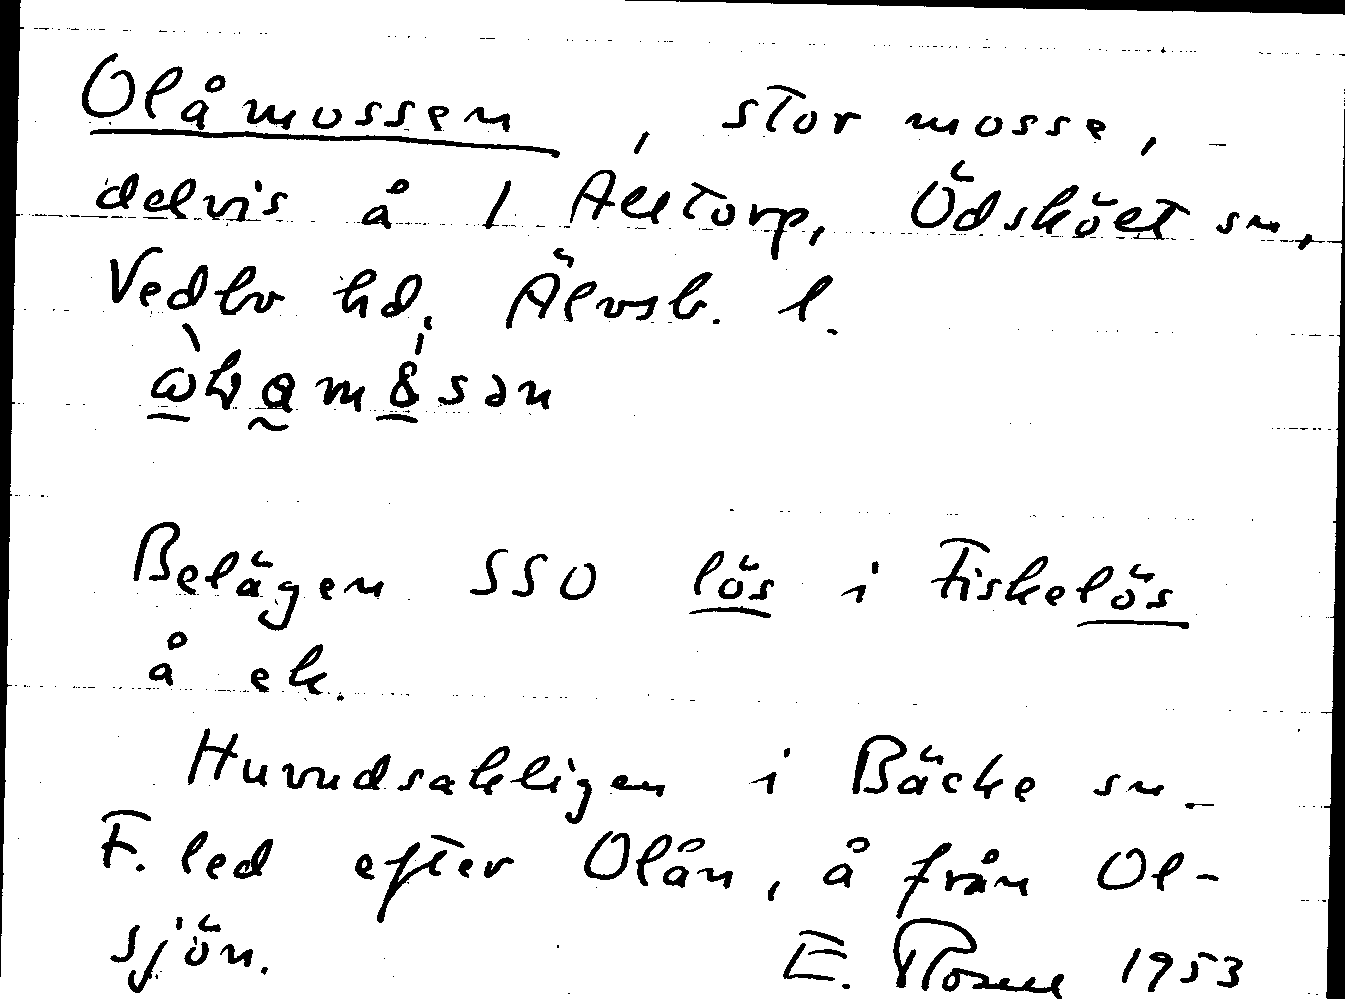 Olåmossen, stor mosse,
delvis å 1 Alltorp, Ödsköl̄t sn,
Vedbo hd. Älvsb. l.
Belägen SSO lös i Fiskelös
å ek.
Huvudsakligen i Bäcke sn.
F. led efter Olån, å från Ol-
sjön. E. 1953